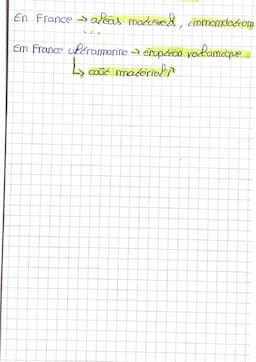 En France → aléas naturels, immondation
...
En France ultramarine → éruption volcanique
↳ coût matériel ↗